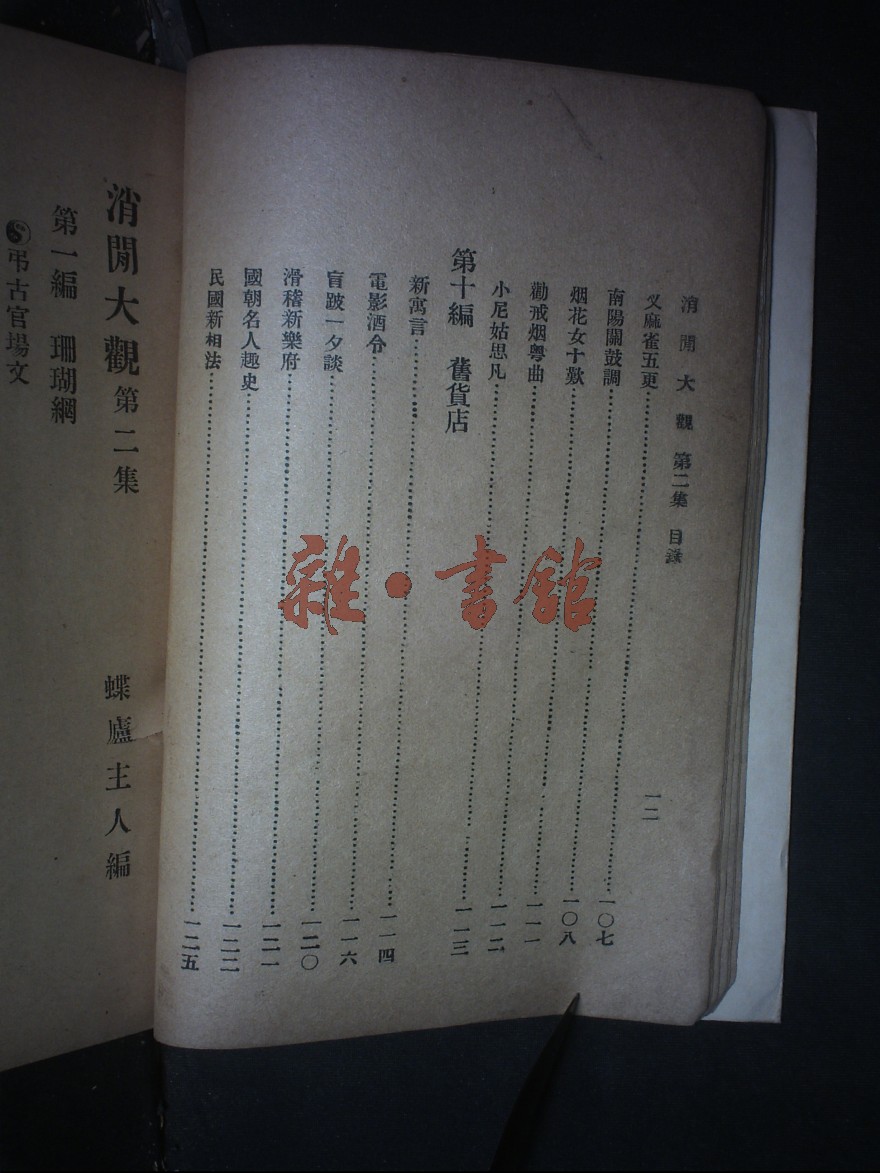 消閒大觀 第二集 目錄 一二
叉麻雀五更…………一〇七
南陽關鼓調…………一〇八
烟花女十歎…………一一一
勸戒烟粵曲…………一一二
小尼姑思凡…………一一三
第十編 舊貨店
新寓言…………一一四
電影酒令…………一一六
盲跛一夕談…………一二〇
滑稽新樂府…………一二一
國朝名人趣史…………一二二
民國新相法…………一二五
消閒大觀 第二集 蝶廬主人編
第一編 珊瑚網
弔古官場文
雜·書館